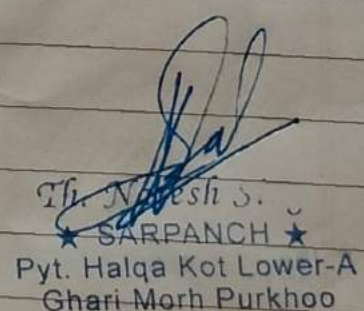 Th. N esh S.
★ SARPANCH ★
Pyt. Halqa Kot Lower-A
Ghari Morh Purkhoo